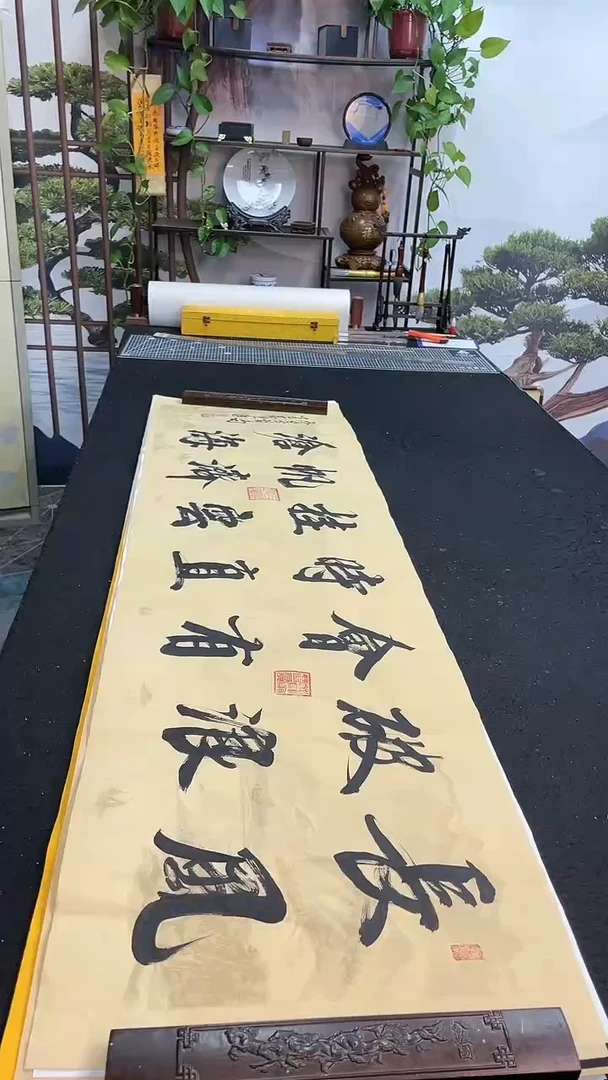 長風
破浪
會有
時直
挂雲
帆濟
滄海